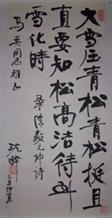 大雪压青松青松挺且
直要知松高洁待到
雪化时 录陈毅元帅诗
同志